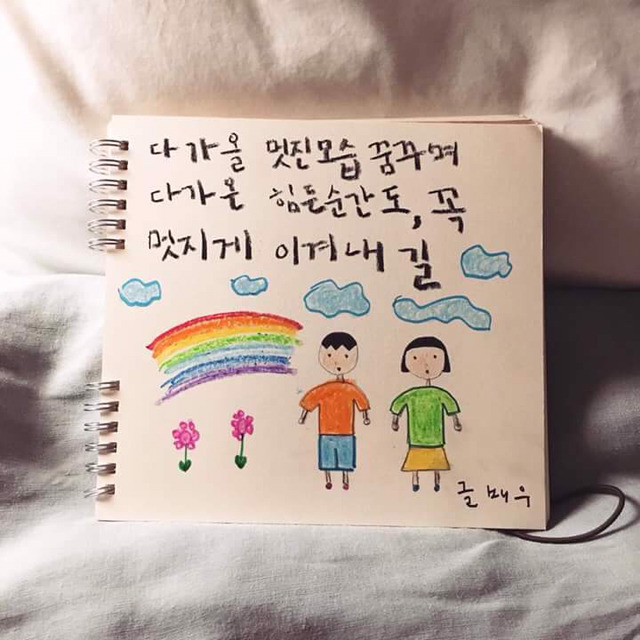 다가올 멋진모습 꿈꾸며
다가온 힘든순간도, 꼭
멋지게 이겨내 길
글배우